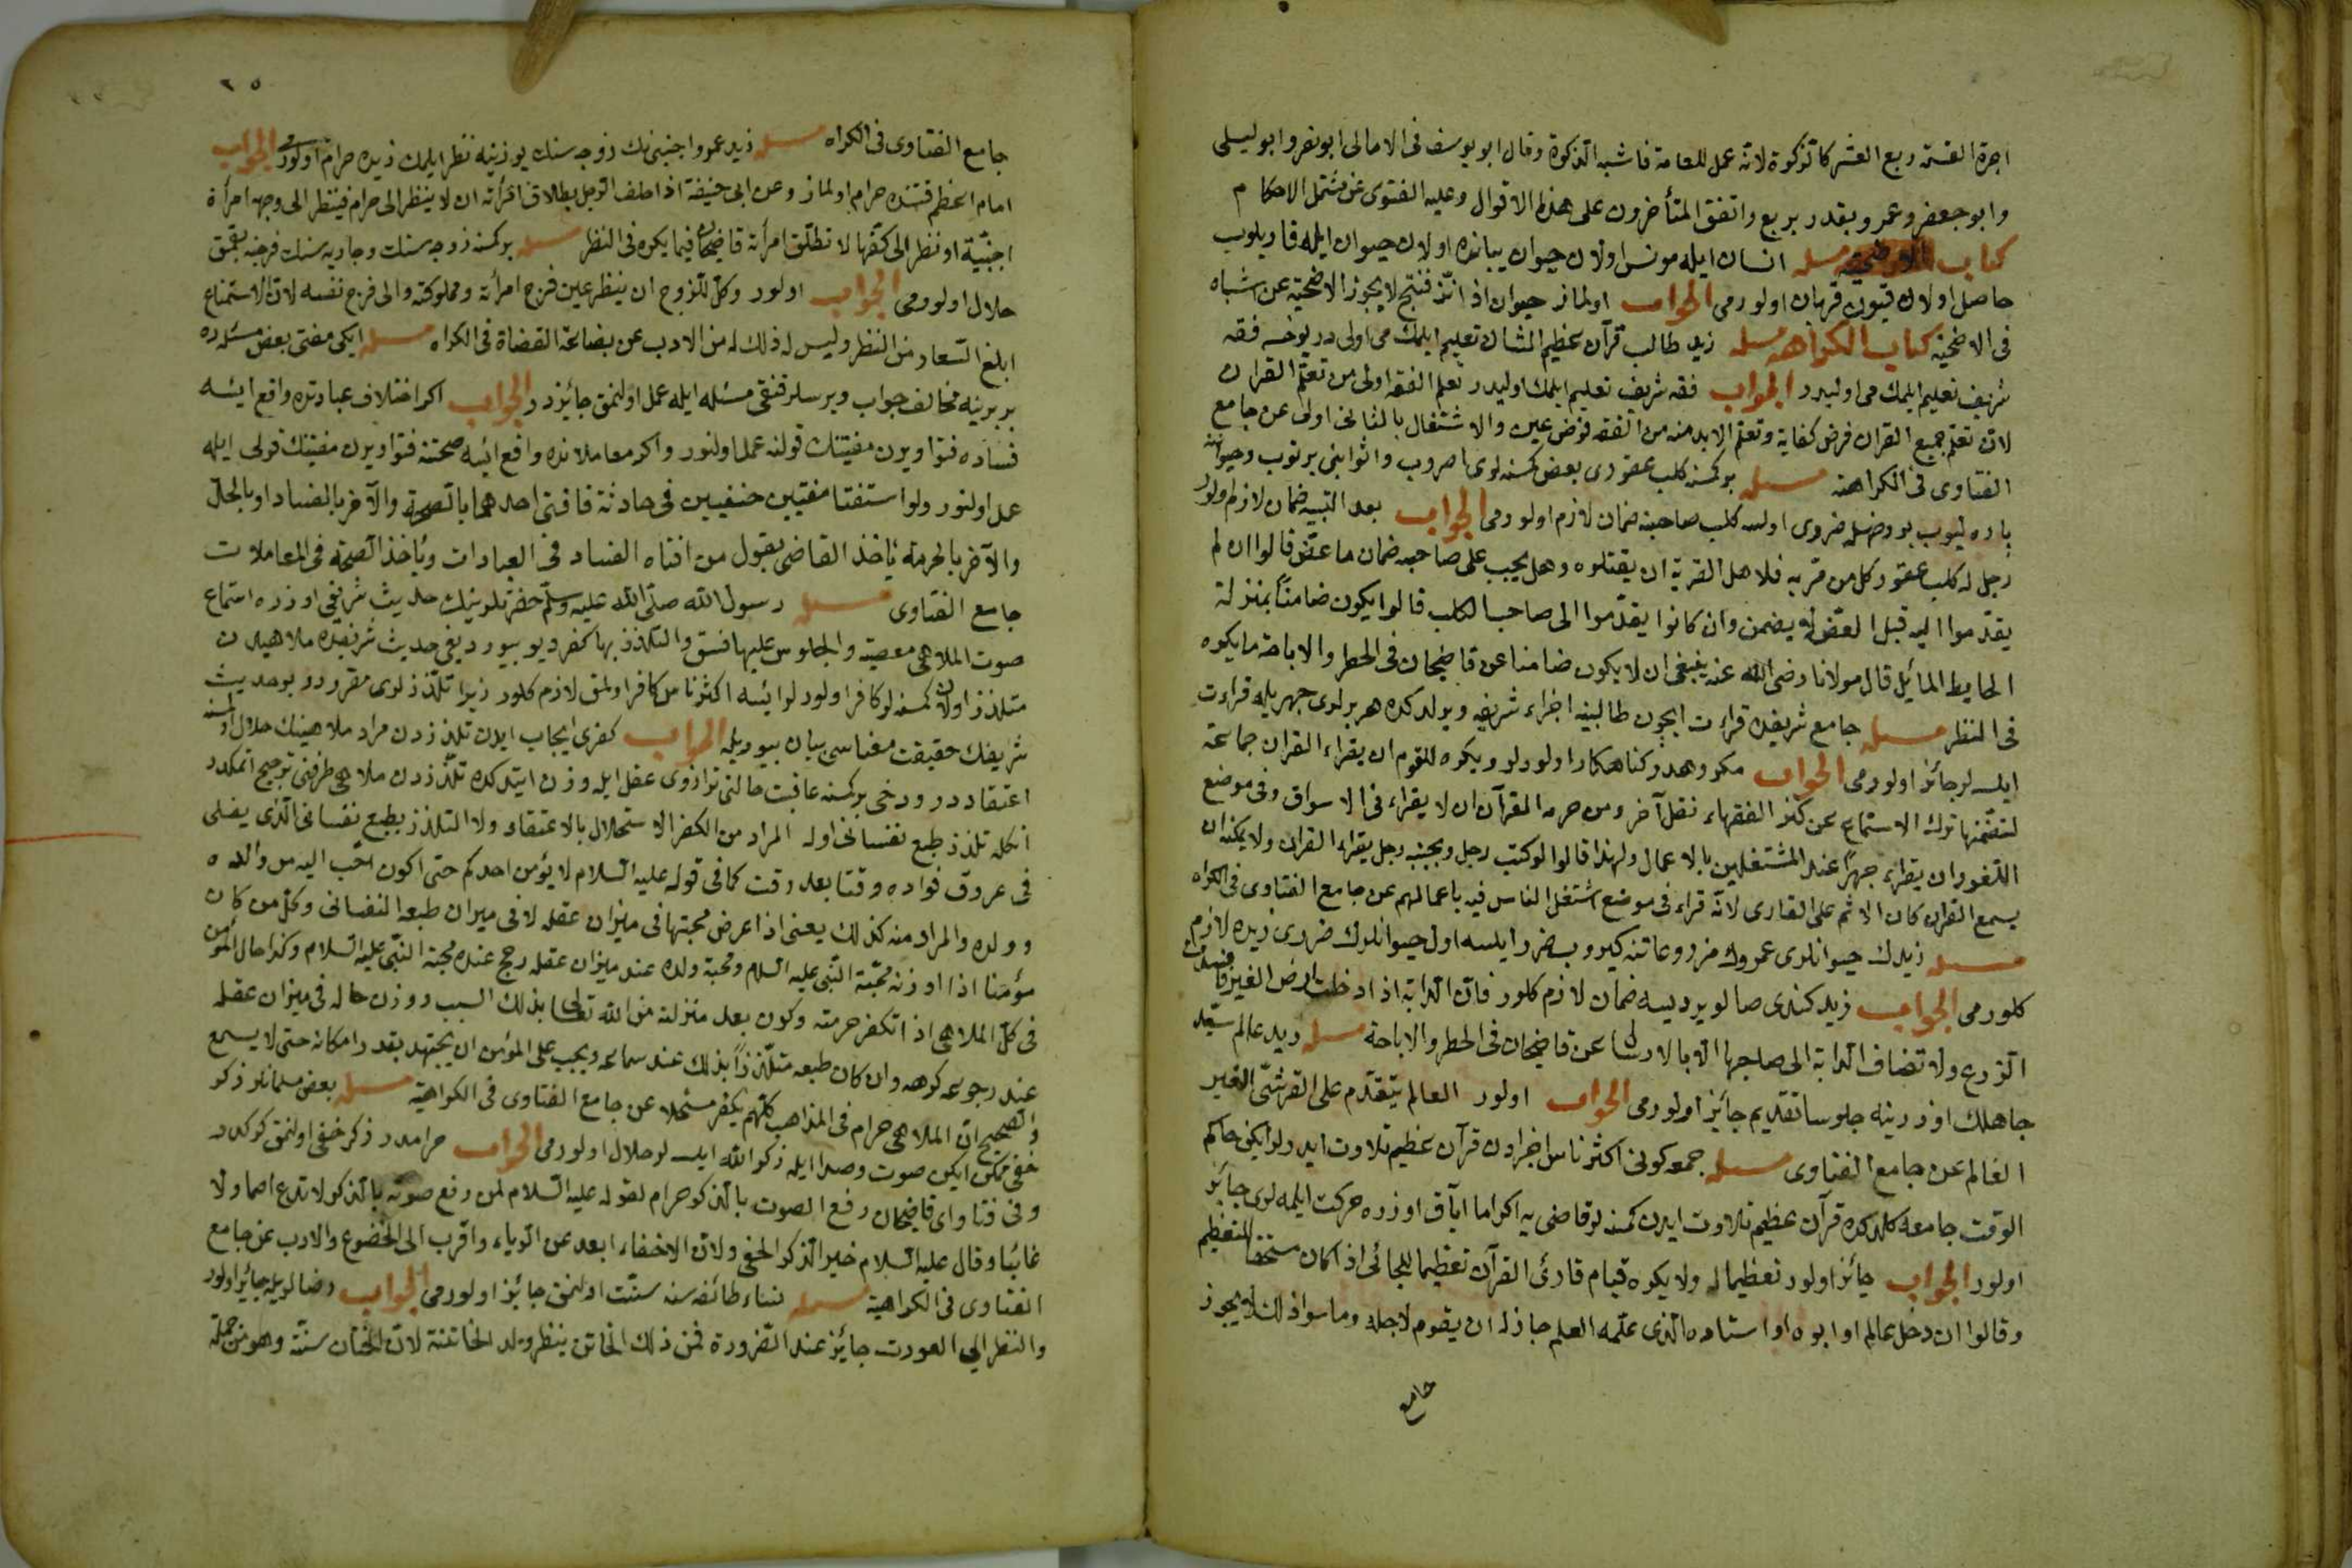 اجرة القسمة ربع العشر كالزكوة لانه عمل للعامة فاشبه الزكوة وقال ابو يوسف فى الامالى ابو نصر وابو ليلى
وابو جعفر وعمرو بقدر بربع واتفق المتأخرون على هذا الاقوال وعليه الفتوى عن مشتمل الاحكام
كتاب الاضحية مسئله انسان ايله مونس اولان حيوان يبانده اولان حيوان ايله قاريلوب
حاصل اولان قيون قربان اولورمى الجواب اولماز حيوان اذا فنتج لا يجوز الاضحية عن اشباه
فى الاضحية كتاب الكراهه مسئله زيد طالب قرآن عظيم الشان تعليم ايلمك مى اولى در يوخسه فقه
شريف تعليم ايلمك مى اوليدر الجواب فقه شريف تعليم ايلمك اوليدر تعلم الفقه اولى من تعلم القران
لان تعلم جميع القران فرض كفاية وتعلم الابد منه من الفقه فرض عين والاشتغال بالثانى اولى عن جامع
الفتاوى فى الكراهته مسئله بر كمسنه كلب عقورى بعض كسنه لرى اصروب واثوابنى يرتوب وحيواننه
ياره ليوب ضررى اولسه كلب صاحبنه ضمان لازم اولورمى الجواب بعد التنبيه ضمان لازم اولور
رجل له كلب عقور كل من قربه فلاهل القرية ان يقتلوه وهل يجب على صاحبه ضمان ما عقر قالوا ان لم
يقدموا اليه قبل العض لا يضمن وان كانوا يقدموا الى صاحب الكلب قالوا يكون ضامنا بمنزلة
الحايط المائل قال مولانا رضى الله عنه ينبغى ان لا يكون ضامنا عن قاضيخان فى الحظر والاباحة ما يكره
فى النظر مسئله جامع شريفده قرائت ايچون طالبينه اجزاء شريفه ويرلدكده هر برلرى جهر ايله قرائت
ايلسه لر جائز اولورمى الجواب مكروهدر كناهكار اولورلر ويكره للقوم ان يقراء القران جماعة
لتضمنها ترك الاستماع عن كنز الفقهاء نقل آخر ومن حرمه القرآن ان لا يقراء فى الاسواق وفى موضع
اللغو وان يقراء جهرا عند المشتغلين بالاعمال ولهذا قالوا لو كتب رجل وبجنبه رجل يقراء القران ولا يمكنه ان
يسمع القران كان الاثم على القارى لانه قراء فى موضع اشتغل الناس فيه باعمالهم عن جامع الفتاوى فى الكراه
مسئله زيدك حيوانلرى عمروك مزروعاتنه كيروب ضرر ايلسه اول حيوانلرك ضررى زيده لازم
كلورمى الجواب زيد كندى صالويرديسه ضمان لازم كلور فان الدابة اذا ادخلت ارض الغير فافسدت
الزرع ولا تضاف الدابة الى صاحبها الا بالارسال عن قاضيخان فى الحظر والاباحة مسئله زيد عالم سيد
جاهلك اوزرينه جلوسا تقديم جائز اولورمى الجواب اولور العالم يتقدم على القرشى الغير
العالم عن جامع الفتاوى مسئله جمعه كونى اكثر ناس اخراون قرآن عظيم تلاوت ايدرلر ايكن حاكم
الوقت جامعه كلدكده قرآن عظيم تلاوت ايدن كمسنه لر قاضى يه اكراما اياق اوزره حركت ايلمه لرى جائز
اولور الجواب جائز اولور تعظيما له ولا يكره قيام قارئ القرآن تعظيما للجائى اذا كان مستحقا للتعظيم
وقالوا ان دخل عالم او ابوه او استاده الذى علمه العلم جاز له ان يقوم لاجله وما سوا ذلك لا يجوز
جامع
٢٥
جامع الفتاوى فى الكراه مسئله زيد عمرو اجنبى نك زوجه سنك يوزينه نظر ايلمك زيده حرام اولورمى الجواب
امام اعظم قتنده حرام اولماز وعن ابى حنيفة اذا حلف الرجل بطلاق امرأته ان لا ينظر الى حرام فينظر الى وجهه امرأة
اجنبية او نظر الى كفها لا تطلق امرأته قاضيخان فيما يكره فى النظر مسئله بر كمسنه زوجه سنك وجاريه سنك فرجنه بقمق
حلال اولورمى الجواب اولور وكل للزوج ان ينظر عين فرج امرأته ومملوكته والى فرج نفسه لان الاستمتاع
ابلغ السعار من النظر وليس له ذلك له من الادب عن بضاعة القضاة فى الكراه مسئله ايكى مفتى بعض مسئله ده
بر برينه مخالف جواب ويرسلر قنقى مسئله ايله عمل اولنمق جائزدر الجواب اكر اختلاف عباداتده واقع ايسه
فساده فتوا ويرن مفتينك قولنه عمل اولنور واكر معاملاتده واقع ايسه صحتنه فتوا ويرن مفتينك قولى ايله
عمل اولنور ولو استفتا مفتيين حنفيين فى حادثة فافتى احدهما بالصحة والآخر بالفساد او بالحل
والآخر بالحرمة يأخذ القاضى بقول من افتاه الفساد فى العبادات ويأخذ الصحة فى المعاملات
جامع الفتاوى مسئله رسول الله صلى الله عليه وسلم حضرتلرينك حديث شريفى اوزره استماع
صوت الملاهى معصية والجلوس عليها فسق والتلذذ بها كفر ديو بيورديغى حديث شريفده ملاهيدن
متلذذ اولان كمسنه لر كافر اولورلر ايسه اكثر ناس كافر اولمق لازم كلور زيرا تلذذلرى مقرردر بو حديث
شريفك حقيقت معناسى بيان بيوريله الجواب كفرى ايجاب ايدن تلذذدن مراد ملاهينك حلال اولمسنه
اعتقاددر ودخى بر كمسنه عاقبت حالنى ترازوى عقل ايله وزن ايتدكده تلذذدن ملاهى طرفنى ترجيح اتمكدر
انكله تلذذ طبع نفسانى اوله المراد من الكفر الاستحلال بالاعتقاد ولا التلذذ بطبع نفسانى الذى يغلى
فى عروق فواده وقتا بعد وقت كما فى قوله عليه السلام لا يؤمن احدكم حتى اكون احب اليه من والده
وولده والمراد منه كذلك يعنى اذا عرض محبتها فى ميزان عقله لا فى ميزان طبعه النفسانى وكل من كان
مؤمنا اذا اوزن محبة النبى عليه السلام ومحبة ولده عند ميزان عقله رجح عنده محبة النبى عليه السلام وكذا حال المؤمن
فى كل الملاهى اذا تكفر حرمته وكون بعد منزلته من الله تعالى بذلك السبب ووزن حاله فى ميزان عقله
عند رجوعه كرهه وان كان طبعه متلذذا بذلك عند سماعه ويجب على المؤمن ان يجتهد بقدر امكانه حتى لا يسمع
والصحيح ان الملاهى حرام فى المذاهب كلهم يكفر مستحلا عن جامع الفتاوى فى الكراهية مسئله بعض مسلمانلر ذكر
خفى ممكن ايكن صوت وصدا ايله ذكر الله ايلسه لر حلال اولورمى الجواب حرامدر ذكر خفى اولنمق كركدر
وفى فتاواى قاضيخان رفع الصوت بالذكر حرام لقوله عليه السلام لمن رفع صوته بالذكر لا تدع اصما ولا
غائبا وقال عليه السلام خير الذكر الخفى ولان الاخفاء ابعد من الرياء واقرب الى الخضوع والادب عن جامع
الفتاوى فى الكراهية مسئله نساء طائفه سنه سنت اولنمق جائز اولورمى الجواب رضالريله جائز اولور
والنظر الى العورت جايز عند الضرورة فمن ذلك الخاتن ينظر ولد الخاتنة لان الختان سنة وهو من جملة